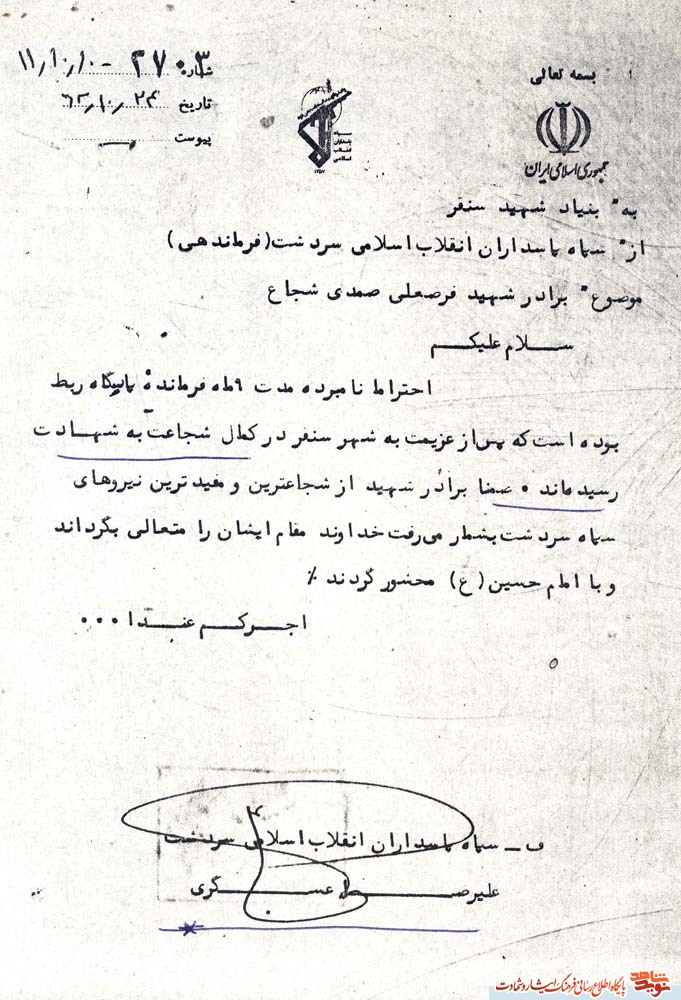 بسمه تعالی
جمهوری اسلامی ایران
سپاه پاسداران انقلاب اسلامی
شماره ۲۷۰۳-۱۱/۱۰/۱۰
تاریخ ۶۳/۱۰/۲۴
پیوست
به " بنیاد شهید سنقر
از " سپاه پاسداران انقلاب اسلامی سردشت (فرماندهی)
موضوع " برادر شهید فرضعلی صمدی شجاع
سلام علیکم
احتراما نامبرده مدت ۹ماه فرمانده پایگاه ربط
بوده است که پس از عزیمت به شهر سنقر در کمال شجاعت به شهادت
رسیده‌اند ۰ ضمنا برادر شهید از شجاعترین و مفیدترین نیروهای
سپاه سردشت بشمار می‌رفت خداوند مقام ایشان را متعالی بگرداند
و با امام حسین (ع) محشور گردند ٪
اجرکم عندا ۰۰۰
ف ــ سپاه پاسداران انقلاب اسلامی سردشت
علیرضا عسگری
نوید شاهد پایگاه اطلاع رسانی فرهنگ ایثار و شهادت